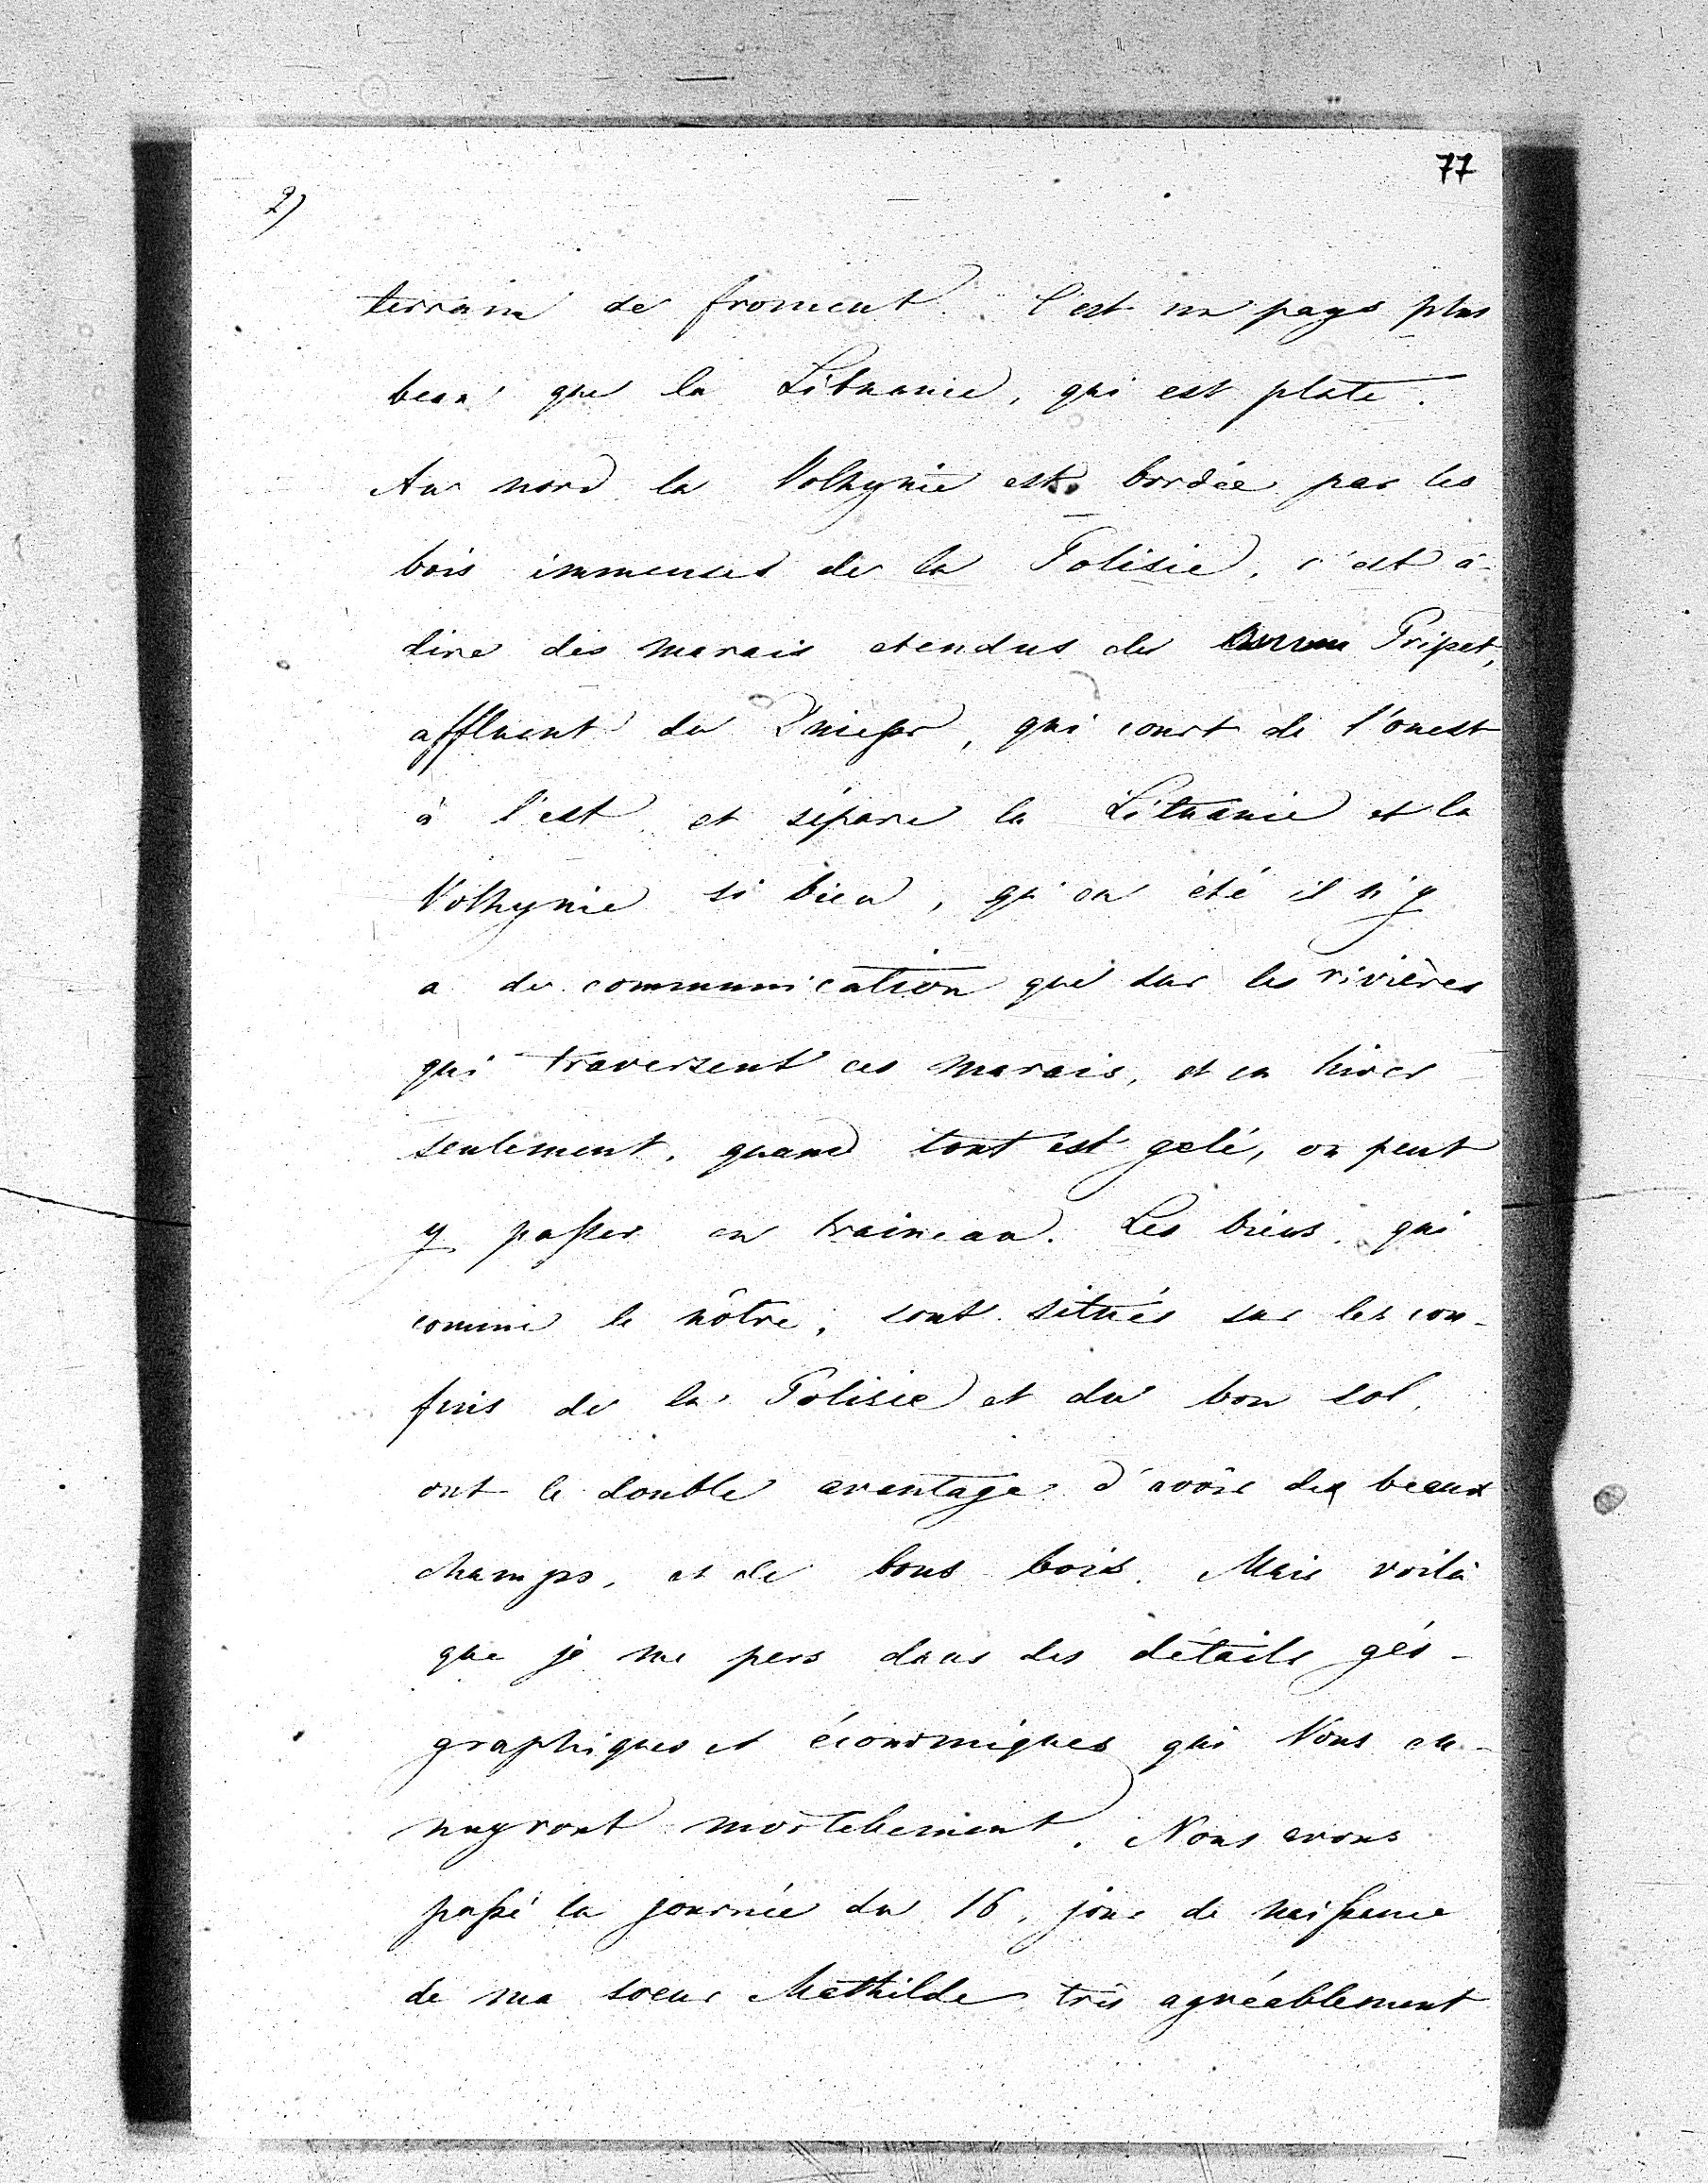 77
2)
terrain de froment. C'est un pays plus
beau que la Lituanie, qui est plate.
Au nord la Volhynie est bordée par les
bois immenses de la Polisie, c'est à-
dire des marais etendus de Pripet,
affluent du Dnieper, qui court de l'ouest
à l'est et sépare la Lituanie et la
Volhynie si bien, qu'en été il n'y
a de communication que sur les rivières
qui traversent ces marais, et en hiver
seulement, quand tout est gelé, on peut
y passer en traineau. Les biens, qui
comme le nôtre, sont situés sur les con-
fins de la Polisie et du bon sol,
ont le double avantage d'avoir de beaux
champs, et de bons bois. Mais voilà
que je me pers dans des détails géo-
graphiques et économiques qui Vous en-
nuyront mortellement. Nous avons
passé la journée du 16, jour de naissance
de ma soeur Mathilde très agréablement